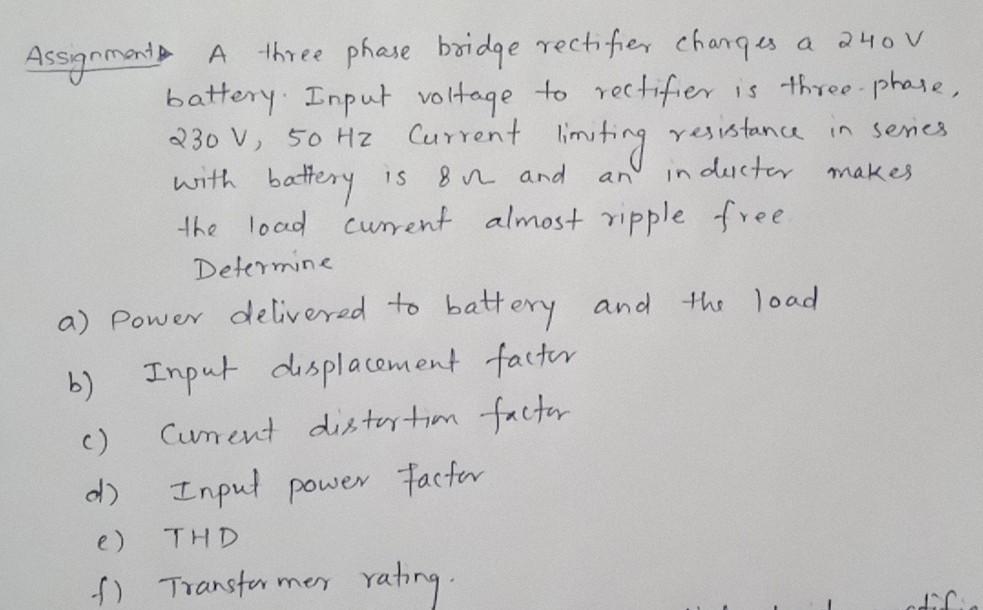 Assignment A three phase bridge rectifier charges a 240 V
battery. Input voltage to rectifier is three-phase,
230 V, 50 Hz Current limiting resistance in series
with battery is 8 Ω and an inductor makes
the load current almost ripple free
Determine
a) Power delivered to battery and the load
b) Input displacement factor
c) Current distortion factor
d) Input power factor
e) THD
f) Transformer rating.